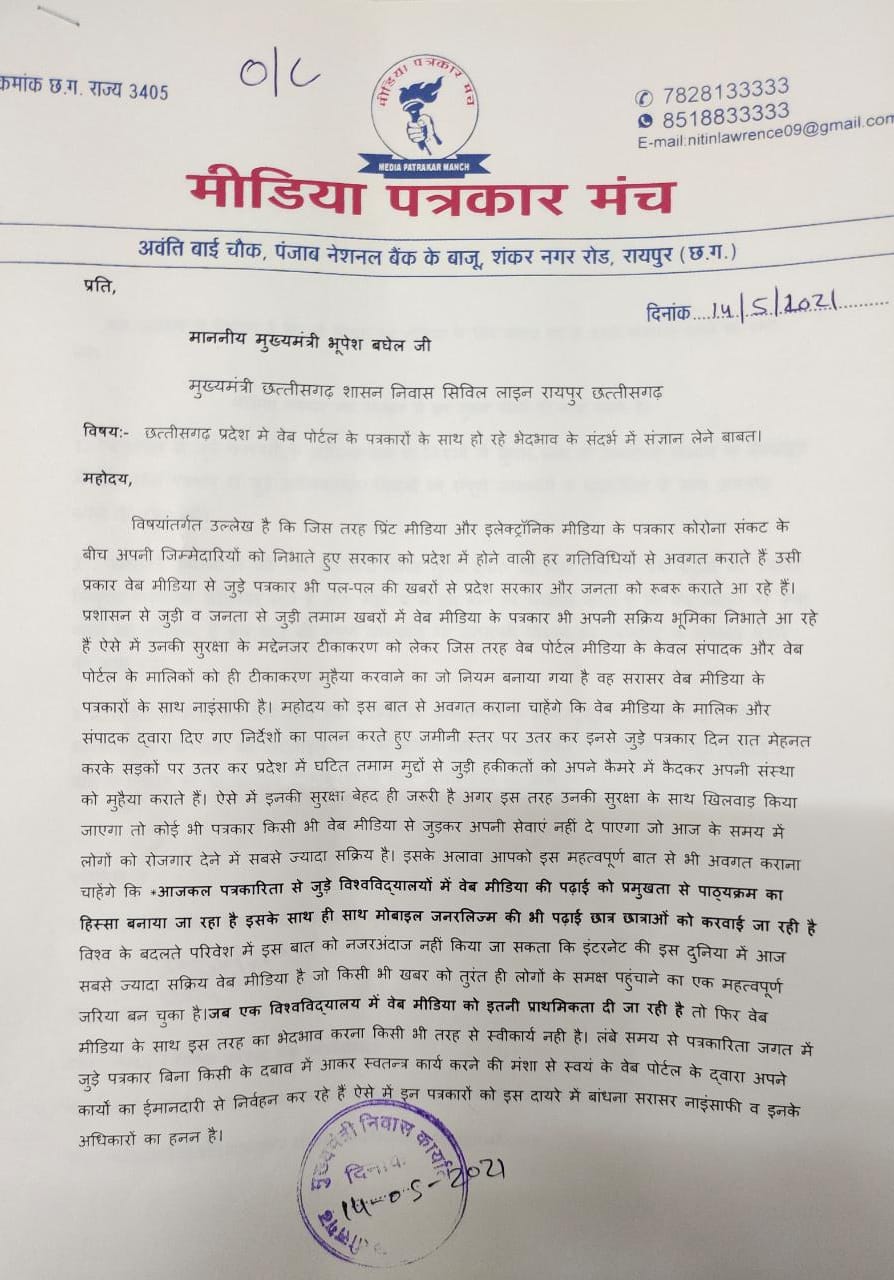 क्रमांक छ.ग. राज्य 3405
O/C
मीडिया पत्रकार मंच
MEDIA PATRAKAR MANCH
7828133333
8518833333
E-mail:nitinlawrence09@gmail.com
मीडिया पत्रकार मंच
अवंति बाई चौक, पंजाब नेशनल बैंक के बाजू, शंकर नगर रोड, रायपुर (छ.ग.)
प्रति,
दिनांक....14/5/2021............
माननीय मुख्यमंत्री भूपेश बघेल जी
मुख्यमंत्री छत्तीसगढ़ शासन निवास सिविल लाइन रायपुर छत्तीसगढ़
विषय:- छत्तीसगढ़ प्रदेश मे वेब पोर्टल के पत्रकारों के साथ हो रहे भेदभाव के संदर्भ में संज्ञान लेने बाबत।
महोदय,
विषयांतर्गत उल्लेख है कि जिस तरह प्रिंट मीडिया और इलेक्ट्रॉनिक मीडिया के पत्रकार कोरोना संकट के
बीच अपनी जिम्मेदारियों को निभाते हुए सरकार को प्रदेश में होने वाली हर गतिविधियों से अवगत कराते हैं उसी
प्रकार वेब मीडिया से जुड़े पत्रकार भी पल-पल की खबरों से प्रदेश सरकार और जनता को रूबरू कराते आ रहे हैं।
प्रशासन से जुड़ी व जनता से जुड़ी तमाम खबरों में वेब मीडिया के पत्रकार भी अपनी सक्रिय भूमिका निभाते आ रहे
हैं ऐसे में उनकी सुरक्षा के मद्देनजर टीकाकरण को लेकर जिस तरह वेब पोर्टल मीडिया के केवल संपादक और वेब
पोर्टल के मालिकों को ही टीकाकरण मुहैया करवाने का जो नियम बनाया गया है वह सरासर वेब मीडिया के
पत्रकारों के साथ नाइंसाफी है। महोदय को इस बात से अवगत कराना चाहेंगे कि वेब मीडिया के मालिक और
संपादक द्वारा दिए गए निर्देशों का पालन करते हुए जमीनी स्तर पर उतर कर इनसे जुड़े पत्रकार दिन रात मेहनत
करके सड़कों पर उतर कर प्रदेश में घटित तमाम मुद्दों से जुड़ी हकीकतों को अपने कैमरे में कैदकर अपनी संस्था
को मुहैया कराते हैं। ऐसे में इनकी सुरक्षा बेहद ही जरूरी है अगर इस तरह उनकी सुरक्षा के साथ खिलवाड़ किया
जाएगा तो कोई भी पत्रकार किसी भी वेब मीडिया से जुड़कर अपनी सेवाएं नहीं दे पाएगा जो आज के समय में
लोगों को रोजगार देने में सबसे ज्यादा सक्रिय है। इसके अलावा आपको इस महत्वपूर्ण बात से भी अवगत कराना
चाहेंगे कि *आजकल पत्रकारिता से जुड़े विश्वविद्यालयों में वेब मीडिया की पढ़ाई को प्रमुखता से पाठ्यक्रम का
हिस्सा बनाया जा रहा है इसके साथ ही साथ मोबाइल जनरलिज्म की भी पढ़ाई छात्र छात्राओं को करवाई जा रही है
विश्व के बदलते परिवेश में इस बात को नजरअंदाज नहीं किया जा सकता कि इंटरनेट की इस दुनिया में आज
सबसे ज्यादा सक्रिय वेब मीडिया है जो किसी भी खबर को तुरंत ही लोगों के समक्ष पहुंचाने का एक महत्वपूर्ण
जरिया बन चुका है।जब एक विश्वविद्यालय में वेब मीडिया को इतनी प्राथमिकता दी जा रही है तो फिर वेब
मीडिया के साथ इस तरह का भेदभाव करना किसी भी तरह से स्वीकार्य नही है। लंबे समय से पत्रकारिता जगत में
जुड़े पत्रकार बिना किसी के दबाव में आकर स्वतन्त्र कार्य करने की मंशा से स्वयं के वेब पोर्टल के द्वारा अपने
कार्यो का ईमानदारी से निर्वहन कर रहे हैं ऐसे में इन पत्रकारों को इस दायरे में बांधना सरासर नाइंसाफी व इनके
अधिकारों का हनन है।
मुख्यमंत्री निवास कार्यालय
दिनांक
14-05-2021